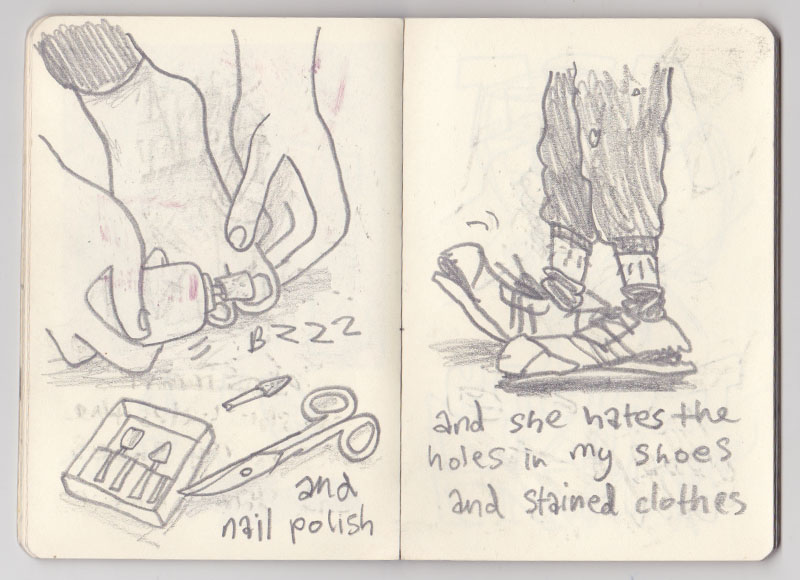 BZZZ
and
nail polish
and she hates the
holes in my shoes
and stained clothes